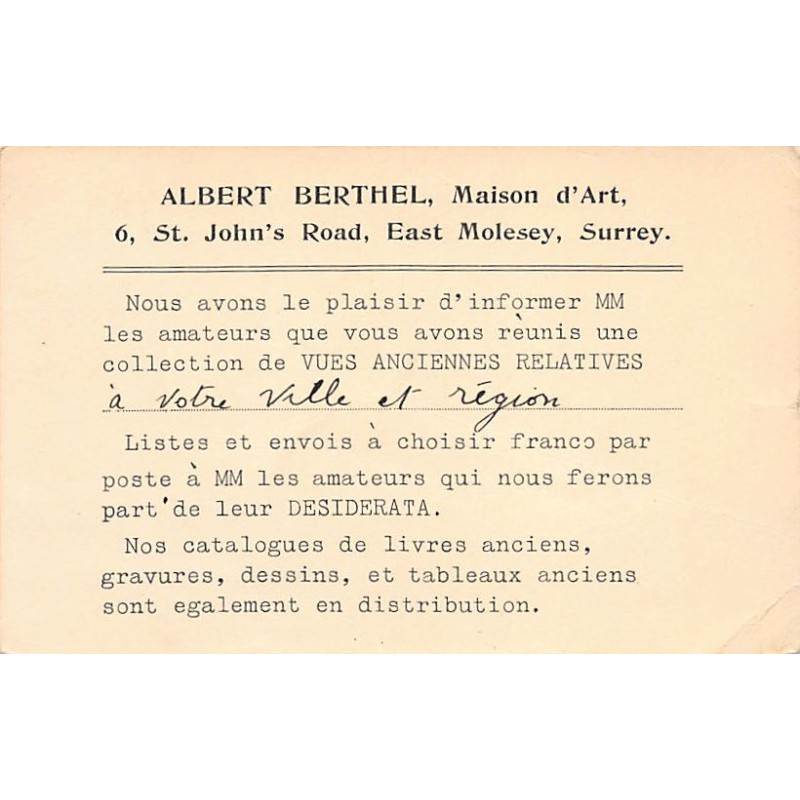 ALBERT BERTHEL, Maison d'Art,
6, St. John's Road, East Molesey, Surrey.
Nous avons le plaisir d'informer MM
les amateurs que vous avons rèunis une
collection de VUES ANCIENNES RELATIVES
à votre ville et région
Listes et envois à choisir franco par
poste à MM les amateurs qui nous ferons
part'de leur DESIDERATA.
Nos catalogues de livres anciens,
gravures, dessins, et tableaux anciens
sont egalement en distribution.